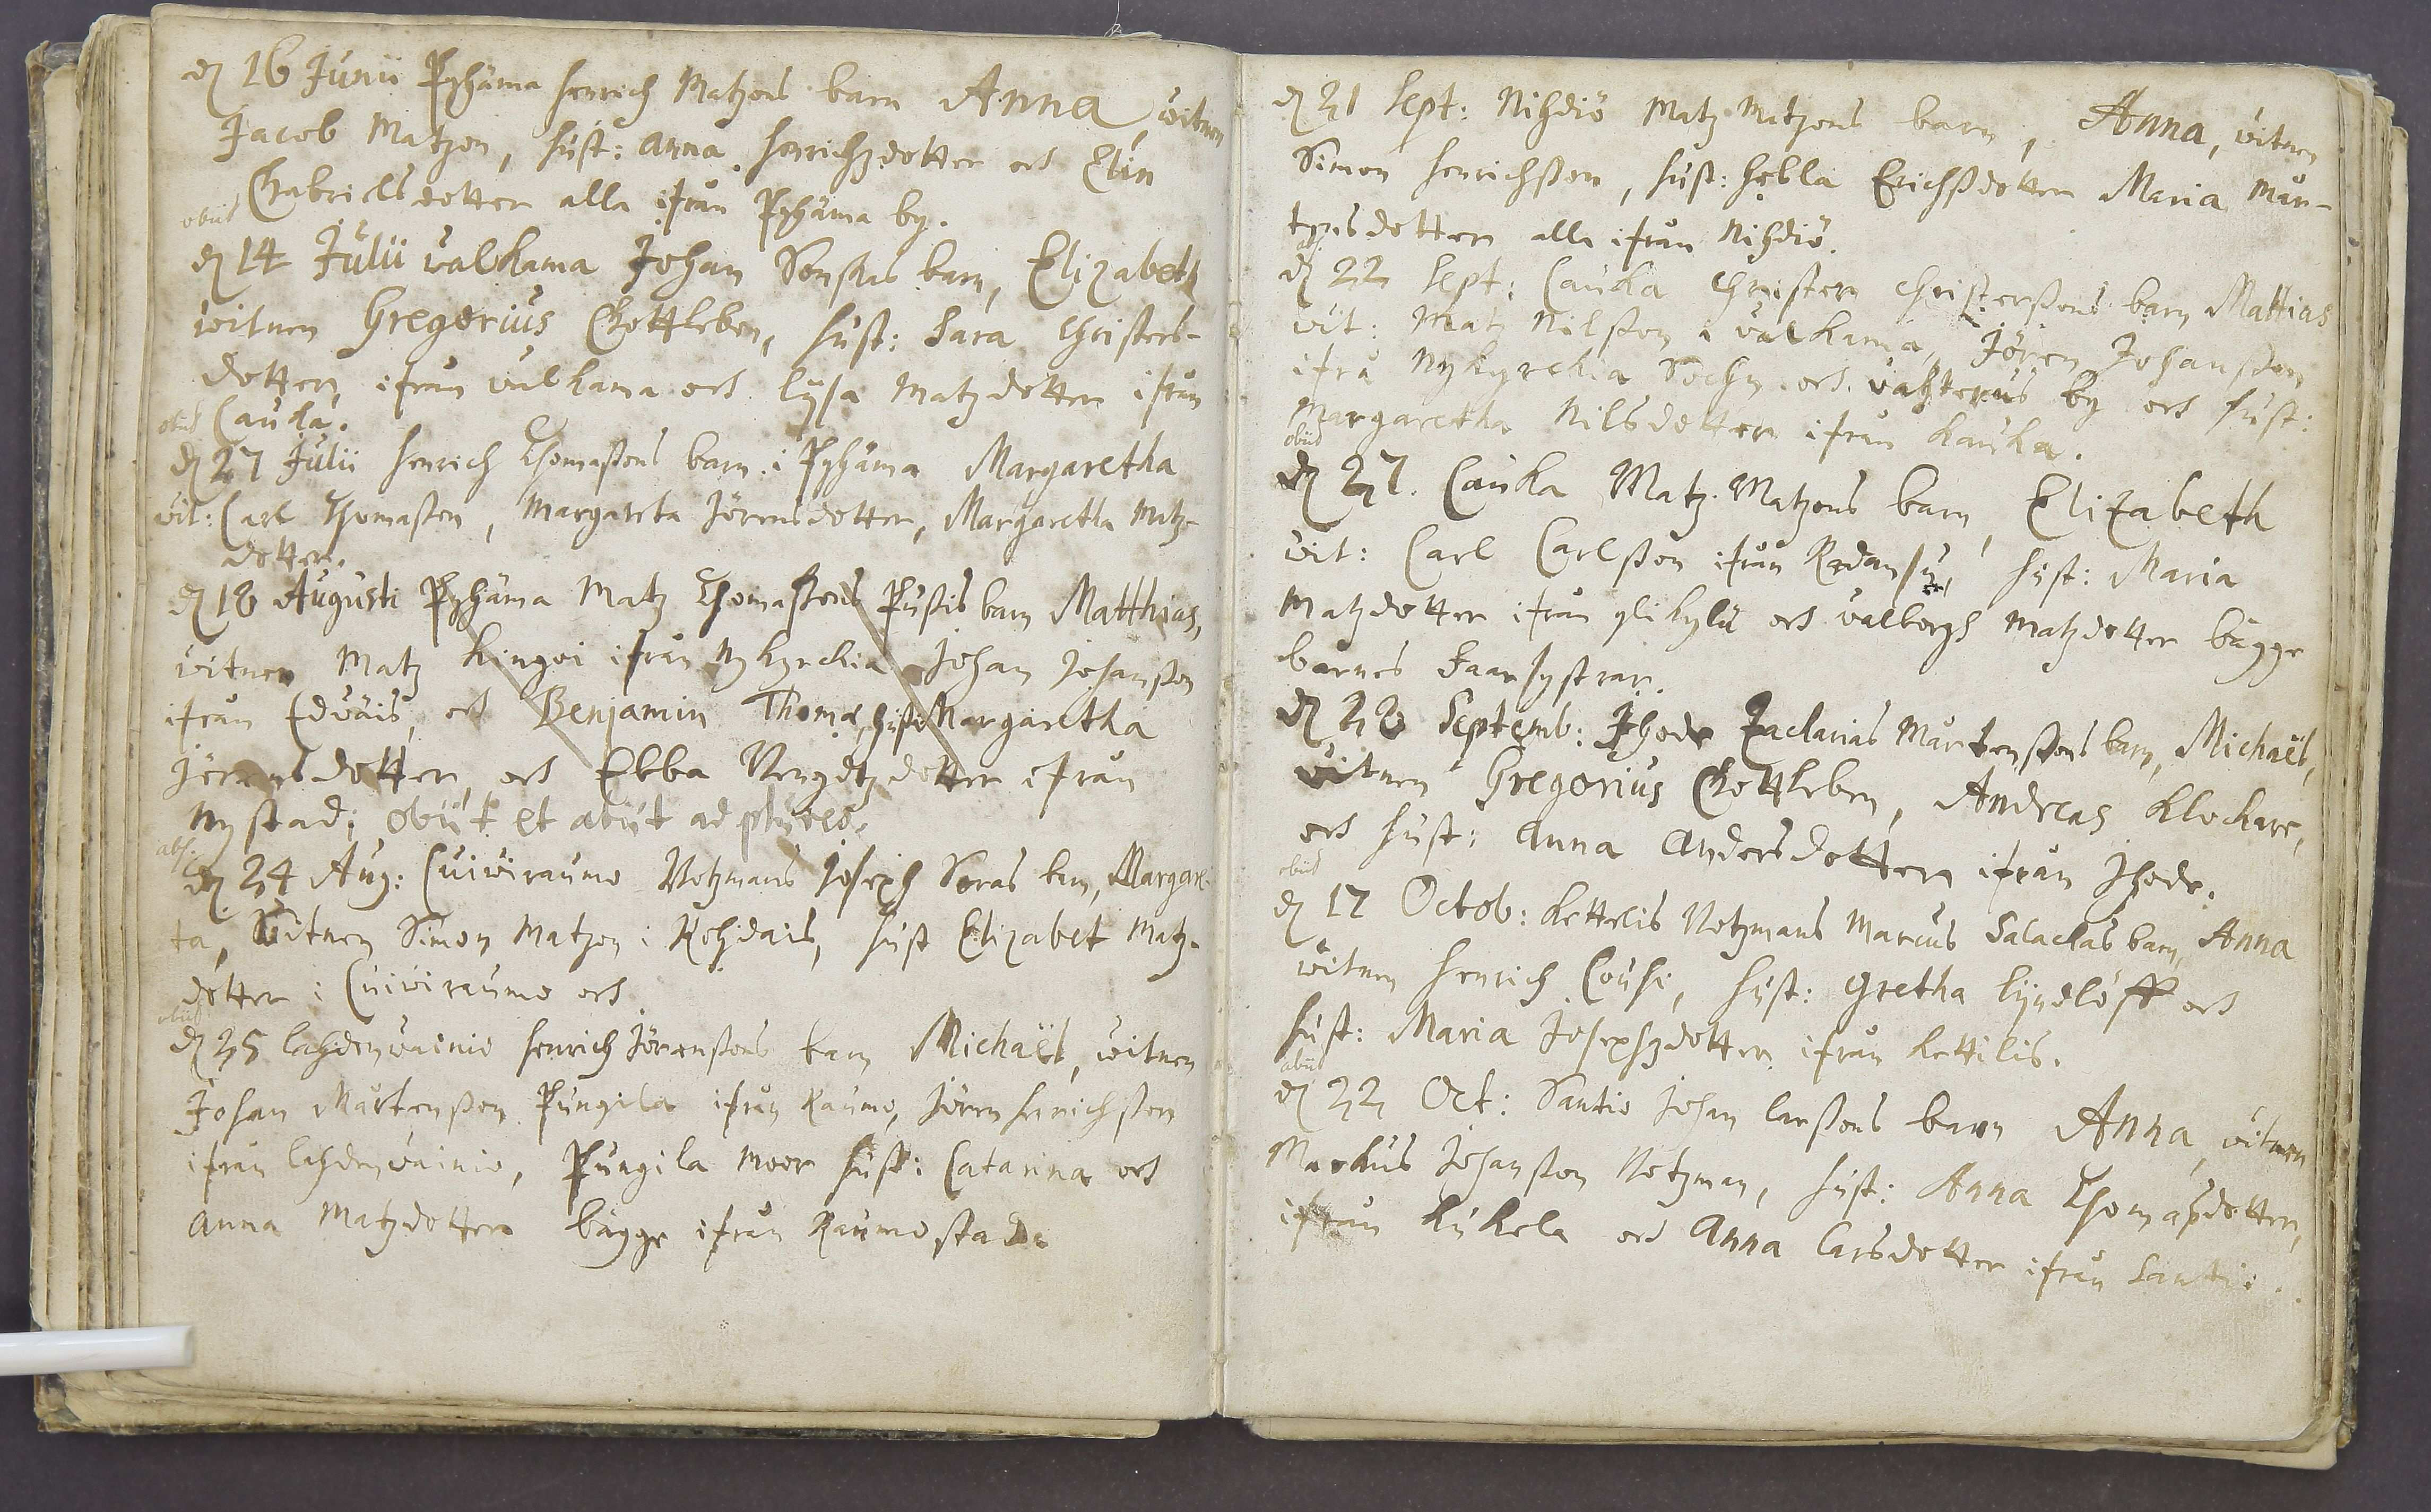 dn 16 Junii Pyhäma Henrich Matzons barn Anna, witnen
Jacob Matzon, hust: Anna Henrichzdotter och Elin
Gabrielsdotter alla ifrån Pyhäma by.
obiit
dn 14 Julii valkama Johan Sonkas barn, Elizabeth
witnen Gregorius Gottleben, hust: Sara Christers-
dotter, ifrån valkama och lijsa Matzdotter ifrån
Cauka.
obiit
dn 27 Julii Henrich Thomassons barn i Pyhäma Margaretha
wit: Carl Thomasson, Margareta Jörensdotter, Margaretha Matz-
dotter.
dn 18 Augusti Pyhäma Matz Thomassons Pussis barn Matthias,
witnen Matz Kingoi ifrån Nykyrckia Johan Johansson
ifrån Edväis, och Benjamin Thomæ, hust Margaretha
Jörensdotter, och Ebba Bengdtzdotter ifrån
Nystad; obiit et abiit ad plures.
abs.
dn 24 Aug: Cuiwiraumo Botzmans Joseph Soras barn, Margare-
ta, Witnen Simon Matzon i Rohdais, hust Elizabet Matz-
dotter i Cuiwiraumo och
obiit
dn 25 lahdenwainio Henrich Jörenssons barn Michaël, witnen
Johan Mårtensson Pungila ifrån Raumo, Jören Henrichsson
ifrån lahdenwainio, Pungila Moor hust: Catarina och
Anna Matzdotter bägge ifrån Raumo stad
dn 21 Sept: Nihdiö Matz Matzons barn, Anna, witnen
Simon Henrichsson, hust: Hebla Erichssdotter Maria Mår-
tensdotter alla ifrån Nihdiö.
dn 22 Sept: Cauka Christer Christerssons barn Mattias
wit: Matz Nilsson i valkama, Jören Johansson
ifrå Nykyrckia Sochn och vahterus by och hust:
Margaretha Nilsdotter ifrån kauka.
obiit
dn 27. Cauka Matz Matzons barn, Elizabeth
wit: Carl Carlsson ifrån hust: Maria
Matzdotter ifrån ylikylä och valborgh Matzdotter bägge
barnes Faarsystrar.
dn 28 Septemb: Ihode Zacharias Mårtenssons barn, Michaël,
witnen Gregorius Gottleben, Andreas Klockare,
och hust: Anna Andersdotter ifrån Ihode.
obiit
dn 17 Octob: Kettelis Botzmans Marcus Salachas barn, Anna
witnen Henrich Couhi, hust: Gretha lijndlöff och
hust: Maria Josephzdotter ifrån Kettilis.
abiit
dn 22 Oct: Santio Johan larssons barn Anna, witnen
Markus Johansson Botzman, hust: Anna Thomassdotter,
ifrån Kukola och Anna larsdotter ifrån Santio.